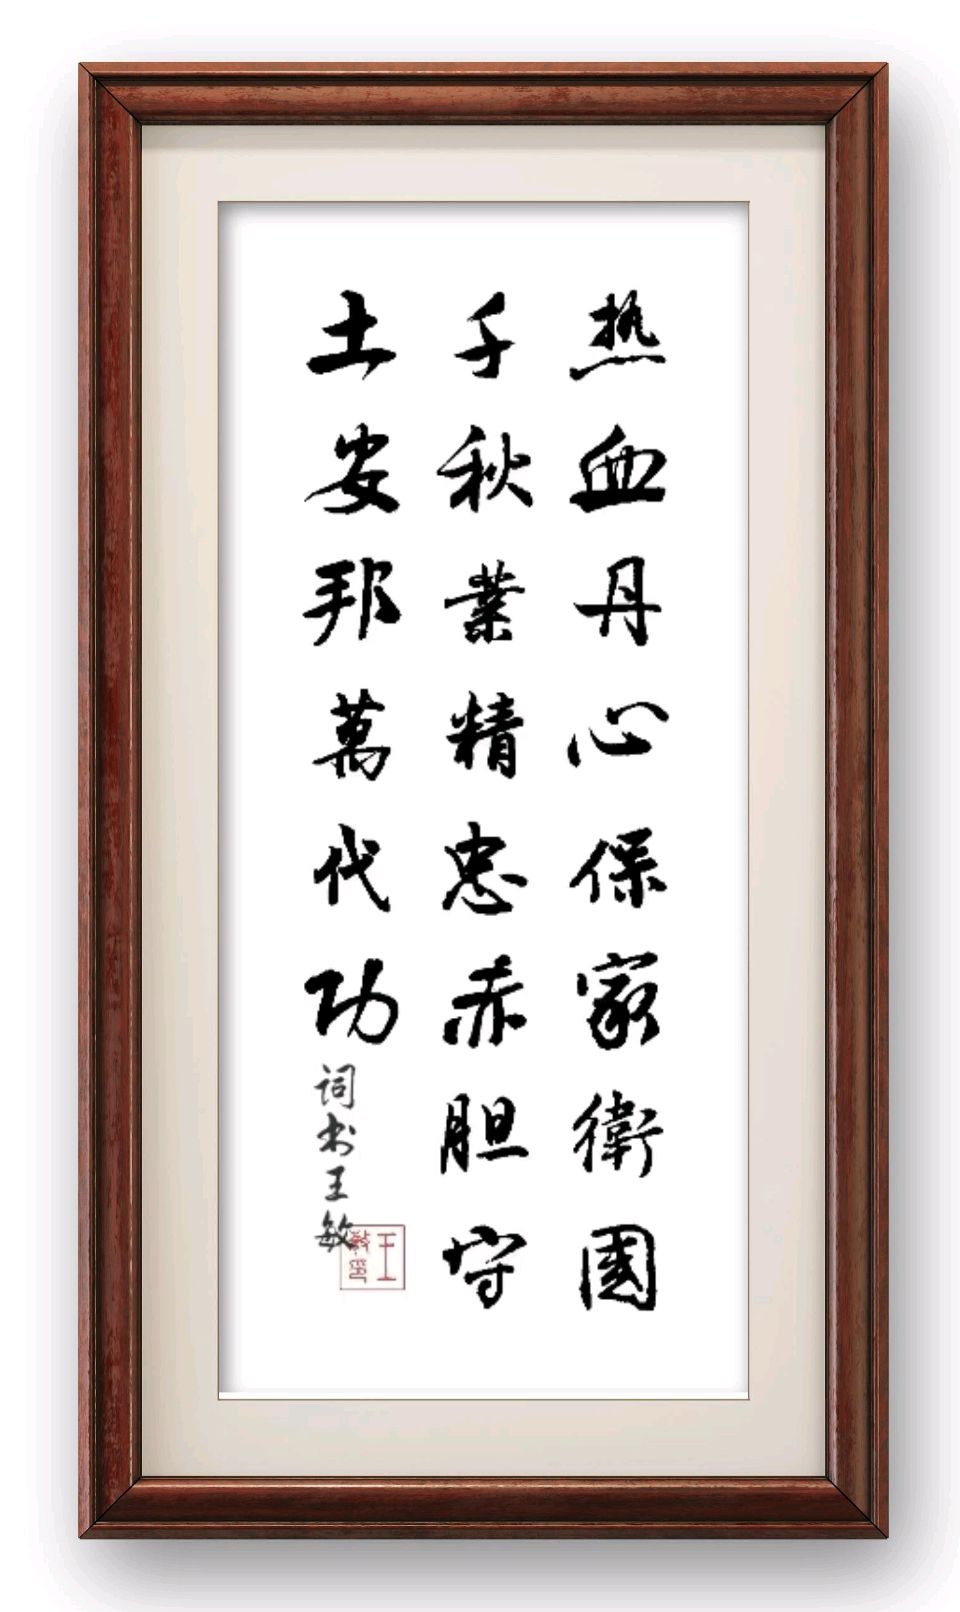 热血丹心保家衛國
千秋業精忠赤胆守
土安邦萬代功
词书王敏
王敏印